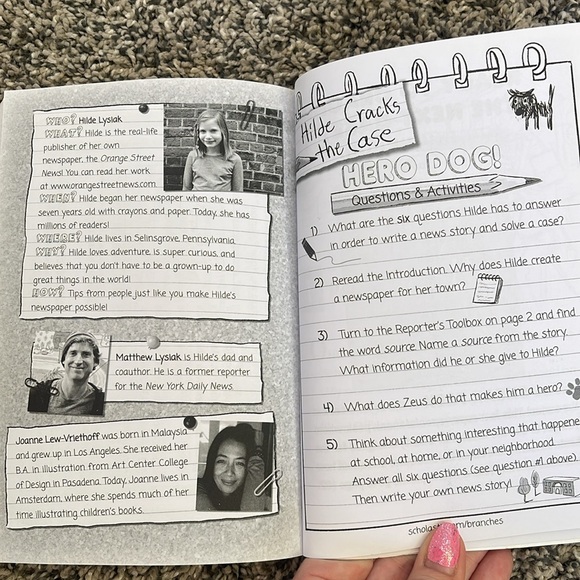 WHO? Hilde Lysiak
WHAT? Hilde is the real-life
publisher of her own
newspaper, the Orange Street
News! You can read her work
at www.orangestreetnews.com.
WHEN? Hilde began her newspaper when she was
seven years old with crayons and paper. Today, she has
millions of readers!
WHERE? Hilde lives in Selinsgrove, Pennsylvania.
WHY? Hilde loves adventure, is super curious, and
believes that you don't have to be a grown-up to do
great things in the world!
HOW? Tips from people just like you make Hilde's
newspaper possible!
Matthew Lysiak is Hilde's dad and
coauthor. He is a former reporter
for the New York Daily News.
Joanne Lew-Vriethoff was born in Malaysia
and grew up in Los Angeles. She received her
B.A. in Illustration from Art Center College
of Design in Pasadena. Today, Joanne lives in
Amsterdam, where she spends much of her
time illustrating children's books.
Hilde Cracks
the Case
HERO DOG!
Questions & Activities
1) What are the six questions Hilde has to answer
in order to write a news story and solve a case?
2) Reread the Introduction. Why does Hilde create
a newspaper for her town?
3) Turn to the Reporter's Toolbox on page 2 and find
the word source. Name a source from the story.
What information did he or she give to Hilde?
4) What does Zeus do that makes him a hero?
5) Think about something interesting that happene
at school, at home, or in your neighborhood.
Answer all six questions (see question #1 above).
Then write your own news story!
scholast om/branches